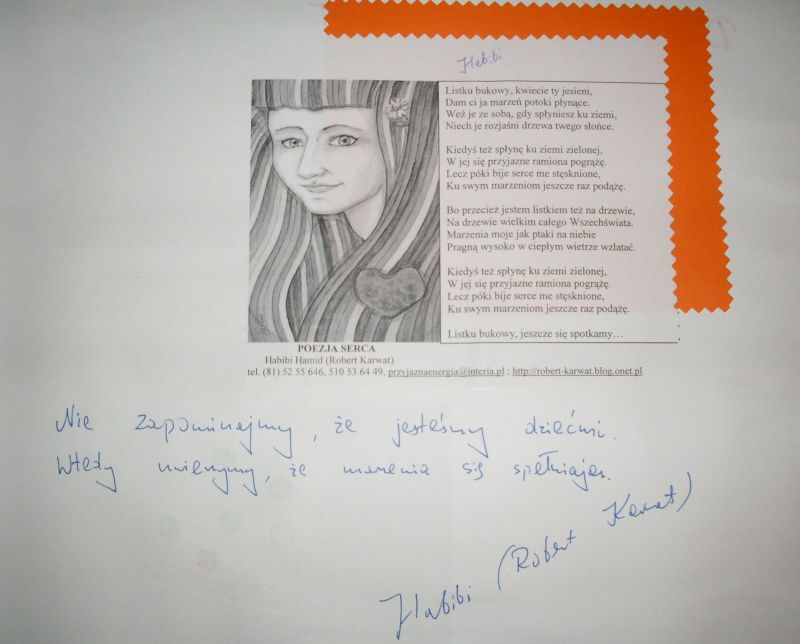 Habibi
Listku bukowy, kwiecie ty jesieni,
Dam ci ja marzeń potoki płynące.
Weź je ze sobą, gdy spłyniesz ku ziemi,
Niech je rozjaśni drzewa twego słońce.
Kiedyś też spłynę ku ziemi zielonej,
W jej się przyjazne ramiona pogrążę.
Lecz póki bije serce me stęsknione,
Ku swym marzeniom jeszcze raz podążę.
Bo przecież jestem listkiem też na drzewie,
Na drzewie wielkim całego Wszechświata.
Marzenia moje jak ptaki na niebie
Pragną wysoko w ciepłym wietrze wzlatać.
Kiedyś też spłynę ku ziemi zielonej,
W jej się przyjazne ramiona pogrążę.
Lecz póki bije serce me stęsknione,
Ku swym marzeniom jeszcze raz podążę.
Listku bukowy, jeszcze się spotkamy…
POEZJA SERCA
Habibi Hamid (Robert Karwat)
tel. (81) 52 55 646, 510 53 64 49, przyjaznaenergia@interia.pl ; http://robert-karwat.blog.onet.pl
Nie zapominajmy, że jesteśmy dziećmi.
Wtedy wierzymy, że marzenia się spełniają.
Habibi (Robert Karwat)